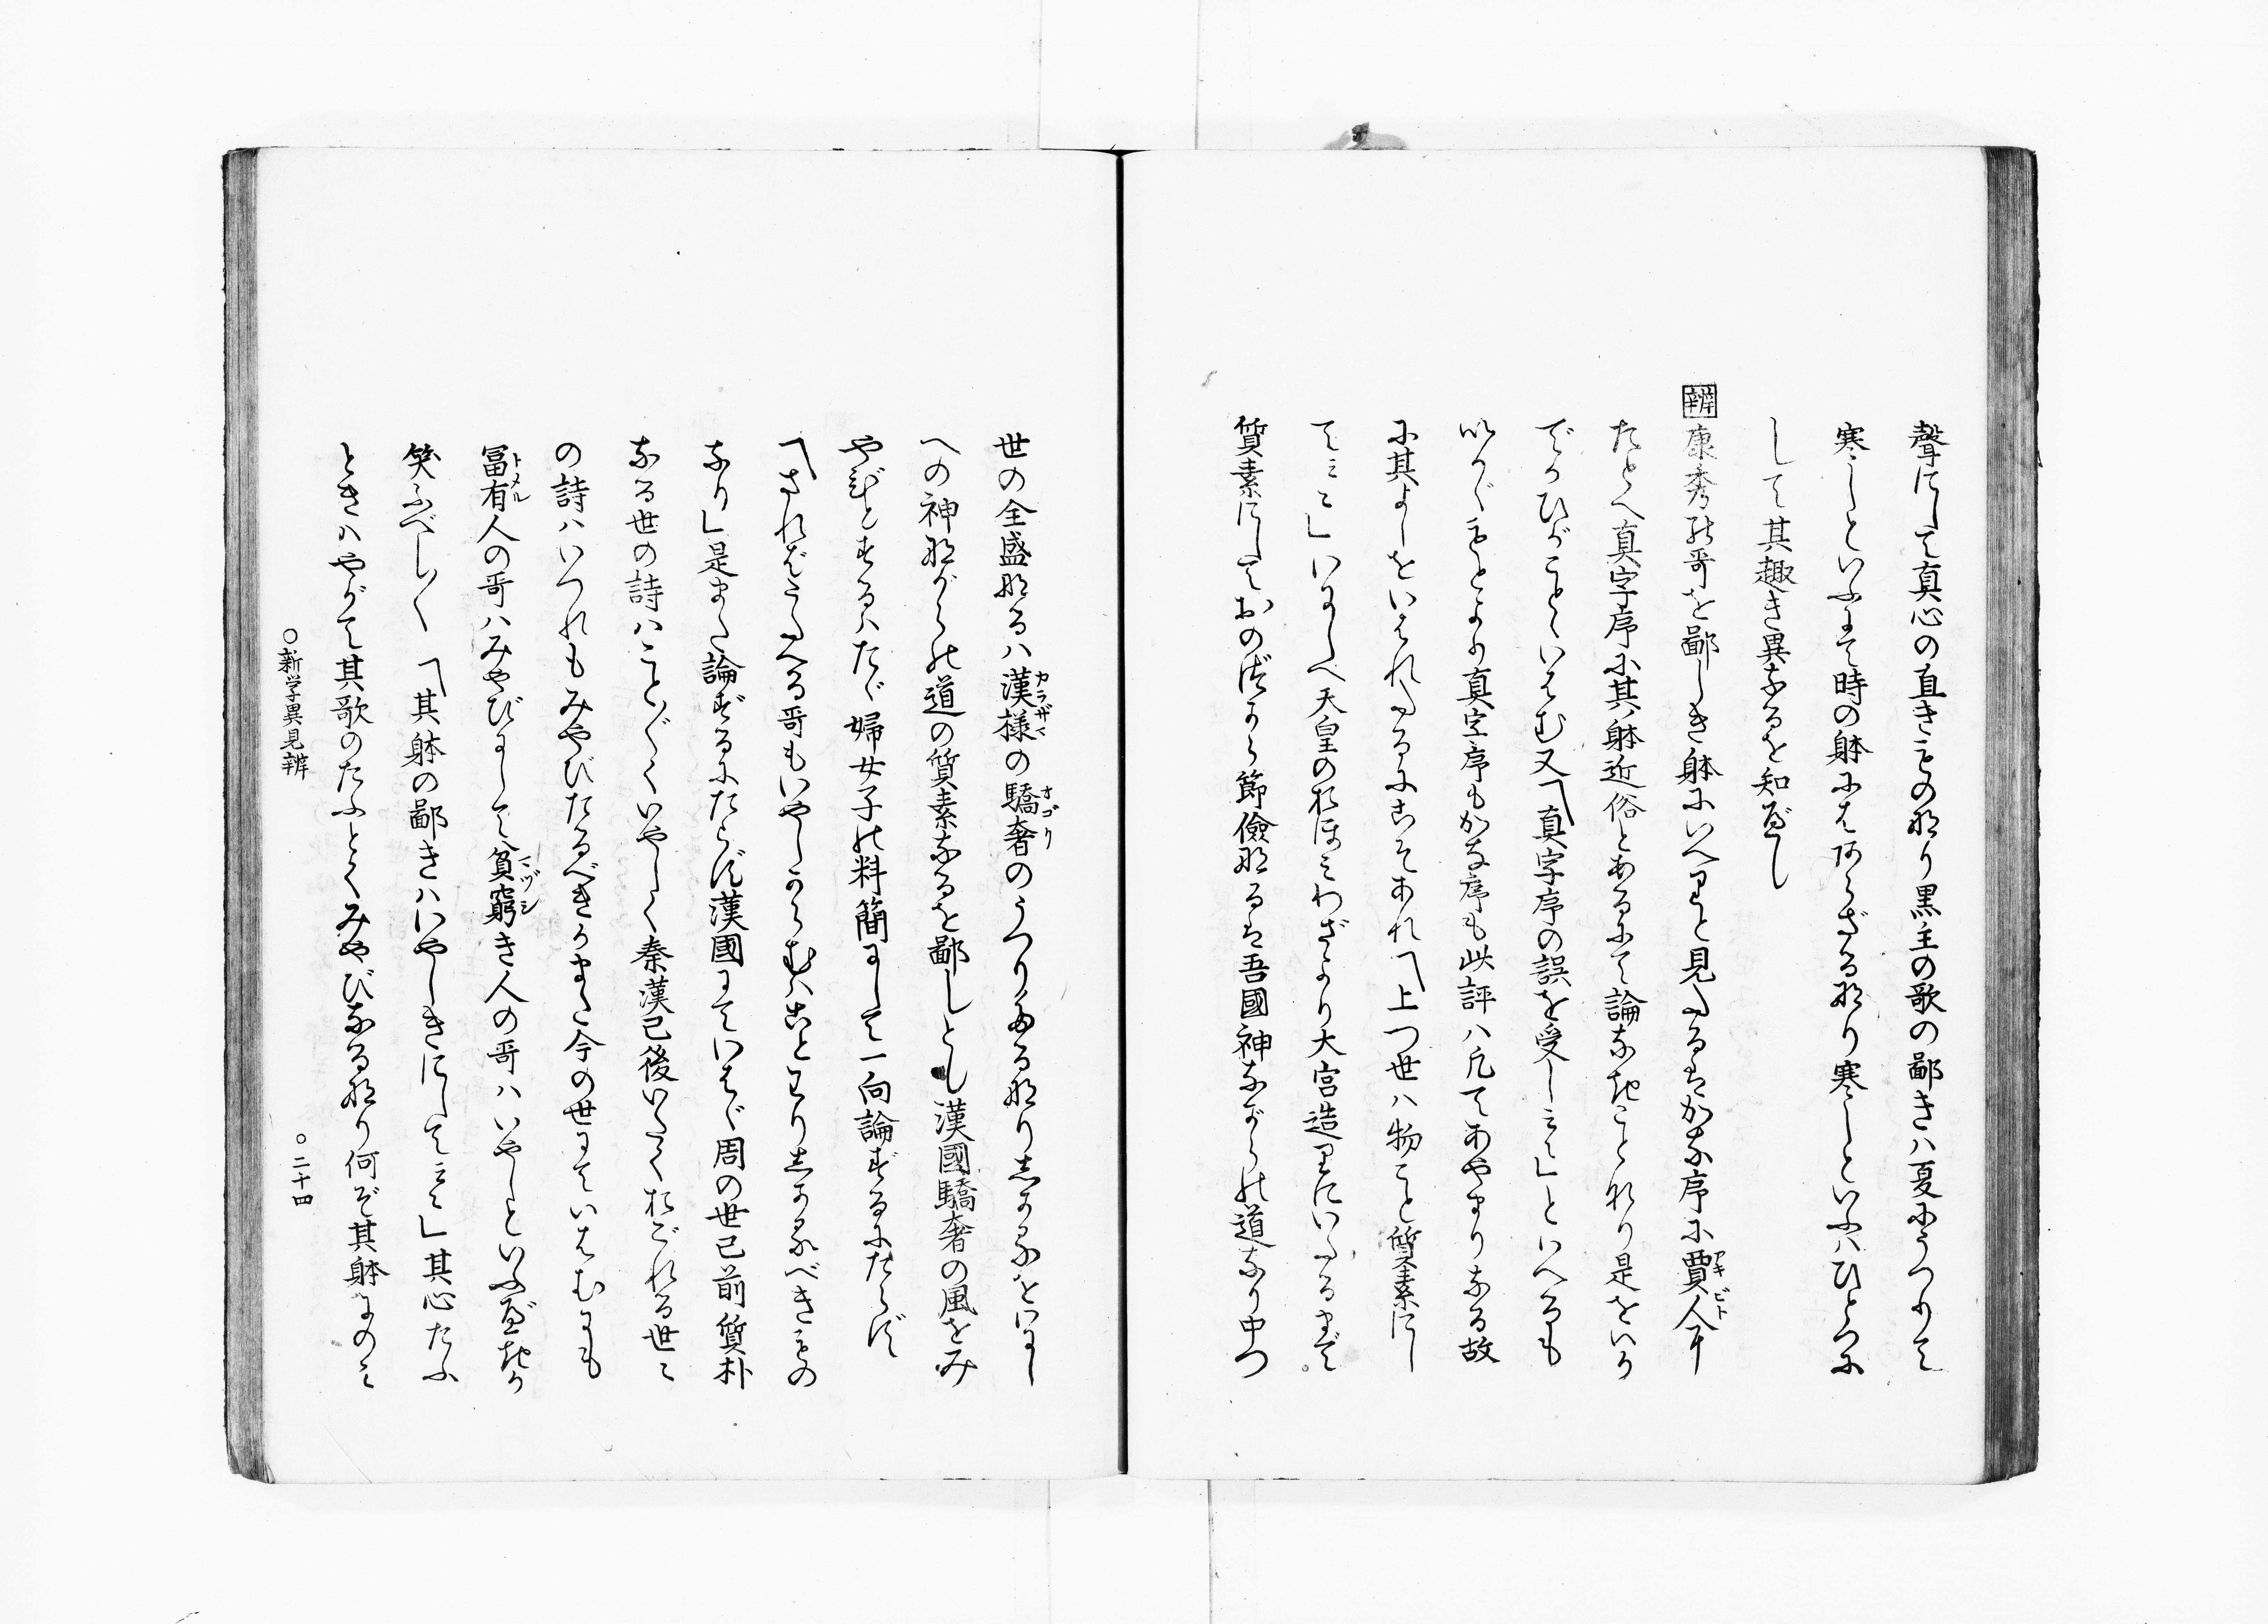 聲にして真心の直きもの也り黒主の歌の鄙きハ夏にうつりて
寒しといふまて時の躰にはあらざる也り寒しといふハひとつに
して其趣き異なるを知べし
辨康秀の哥を鄙しき躰にいへりと見たるはかな序に賈人をアキビト
たとへ真字序に其躰近俗とあるにて論なきことなり是をいか
でかひがことゝいはむ又「真字序の誤を受し云々」といへるも
いかゞもとより真字序もかな序も此評ハ凡てあやまりなる故
に其よしをいはれたるにこそあれ「上つ世ハ物こと質素にし
て云々」いにしへ天皇のおほみわざより大宮造りにいたるまで
質素にしておのづから節儉なるは吾國神ながらの道なり中つ
世の全盛なるハ漢様カラザマの驕奢オゴリのうつりたる也りしかるをいにし
への神ながらの道の質素なるを鄙しとし漢國驕奢の風をみ
やびとするハたゞ婦女子の料簡にして一向論ずるにたらず
「されはたゝへる哥もいやしからむハことわりしかるべきもの
なり」是また論ずるにたらず漢國にていはゞ周の世已前質朴
なる世の詩ハことごとくいやしく秦漢已後いたくおごれる世々
の詩ハいつれもみやびたるべきかまた今の世にていはむにも
冨有トメル人の哥ハみやびにして貧窮マヅシき人の哥ハいやしといふべきか
笑ふべし〳〵「其躰の鄙きハいやしきにして云々」其心たふ
ときハやがて其歌のたふとくみやびなる也り何ぞ其躰にのミ
○新学異見辨
○二十四